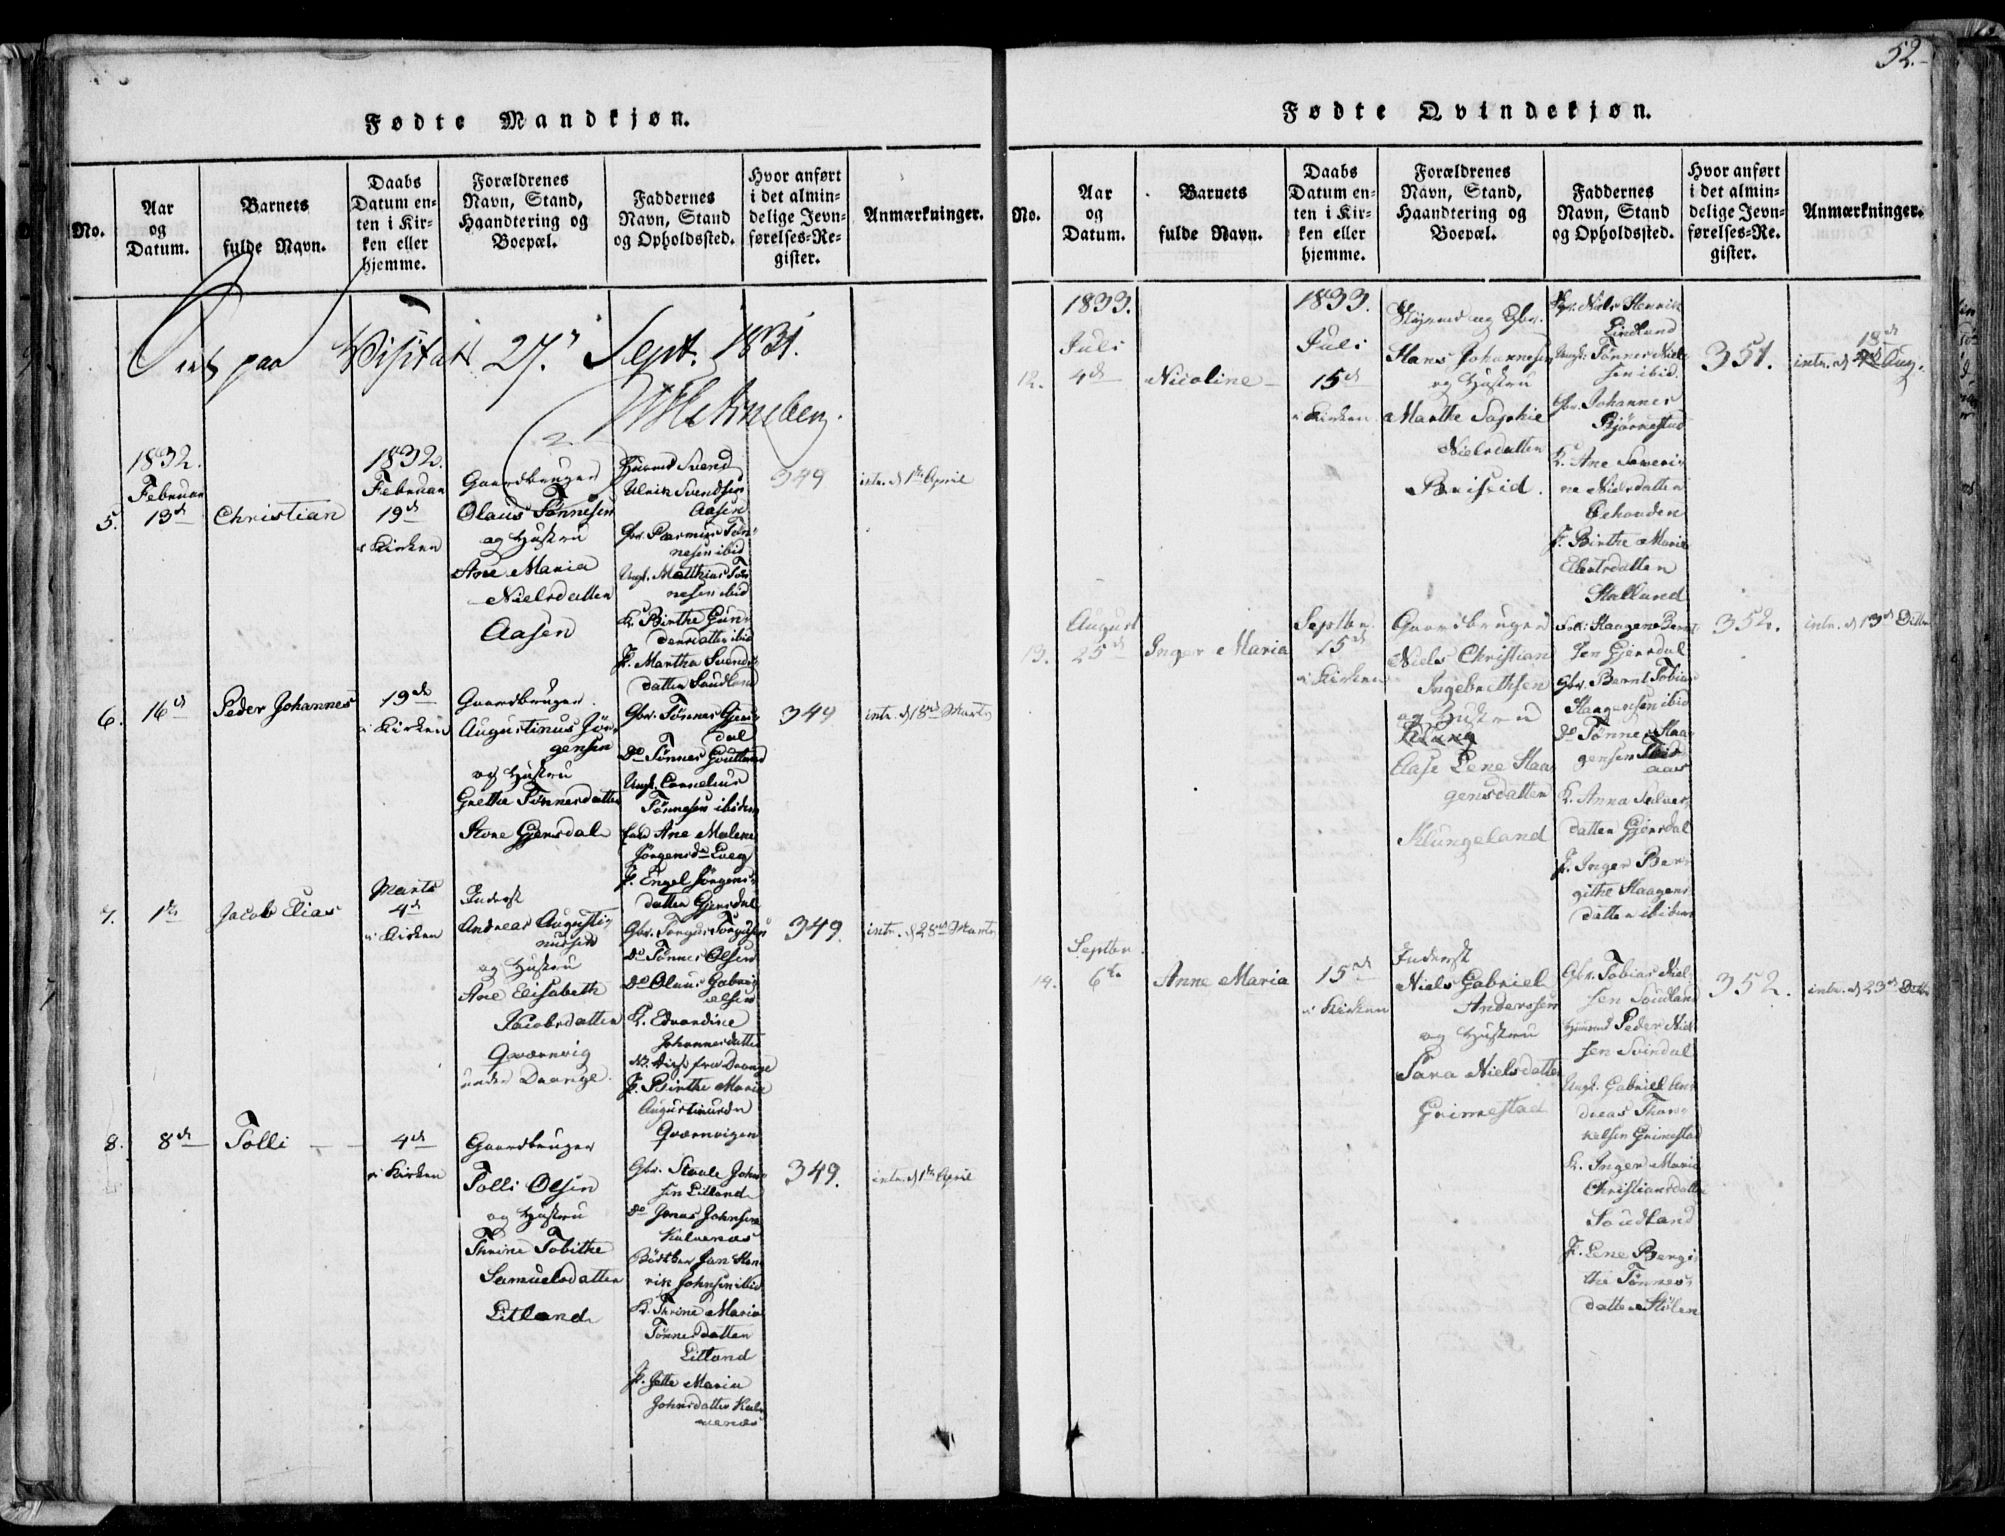 Fødte Mandkjøn.
No.
Aar
og
Datum.
Barnets
fulde Navn.
Daabs
Datum en-
ten i Kir-
ken eller
hjemme.
Forældrenes
Navn, Stand,
Haandtering og
Boepæl.
Faddernes
Navn, Stand
og Opholdssted.
Hvor anført
i det almin-
delige Jevn-
førelses-Re-
gister.
Anmærkninger.
paa Visitats 27. Sept. 1831.
5.
1832.
Februar
13de
Christian
1832.
Februar
19de
i Kirken
Gaardbruger
Olaus Tønnesen
og Hustru
Ane Maria
Nielsdatter
Aasen
Huusmd Svend
Ulrik Svendsen
Aasen
Gbr. Rasmus Tøn-
nesen ibid
Ungk. Matthias Tøn
nesen ibid
K. Birthe Gun-
dersdatter ibid
P. Martha Svends
datter Saudland
349
intr. d 1ste April
6.
16de
Peder Johannes
19de
i Kirken
Gaardbruger
Augustinus Jør-
gensen
og Hustru
Grethe Tønnesdatter
Store Gjersdal
Gbr. Tønnes Gjers-
dal
Do Tønnes
Ungk. Cornelius
Tønnesen ibidem
Ane Malene
Jørgensdr
P. Engel Jørgens-
datter Gjersdal
349
intr. d 18de Marts
7.
1ste
Jacob Elias
Marts
4de
i Kirken
Inderst
Andreas Augusti-
nussen
og Hustru
Ane Elisabeth
Jacobsdatter
Qværnvig
under Drange
Gbr. Torgus Torgusen
Do Tønnes Olsen
Do Olaus Gabri-
elsen
K. Edvardine
Johannesdatter
fra Drange
P. Birthe Marie
Augustinusdr
Qværnvigen
349.
intr. d 28de Marts
8.
8de
Tolli
4de
i Kirken
Gaardbruger
Tolli Olsen
og Hustru
Thrine Tobithe
Samuelsdatter
Litland
Gbr. Staale John-
sen Litland
Do Jonas Johnsen
Kalvenæs
Bødker Jan Hen-
rik Johnsen ibid
K. Thrine Maria
Tønnesdatter
Litland
P. Jette Maria
Johnsdatter Kal-
venæs
349.
intr. d 1ste April
52.
Fødte Qvindekjøn.
No.
Aar
og
Datum.
Barnets
fulde Navn.
Daabs
Datum en-
ten i Kir-
ken eller
hjemme.
Forældrenes
Navn, Stand,
Haandtering og
Boepæl.
Faddernes
Navn, Stand
og Opholdssted.
Hvor anført
i det almin-
delige Jevn-
førelses-Re-
gister.
Anmærkninger.
12.
1833.
Juli
4de
Nicoline
1833.
Juli
15de
i Kirken
og Gbr.
Hans Johannesen
og Hustru
Marthe Sophie
Nielsdatter
Briseid.
Gbr. Niels Henrik
Lindland
Ungk. Tønnes Niel-
sen ibid.
Gbr. Johannes
Bjørnestad
K. Ane Severi-
ne Nielsdatter
P. Birthe Marie
Elbertsdatter
Stalland
351.
18de
intr. d Aug.
13.
August
25de
Inger Maria
Septbr.
15de
i Kirken
Gaardbruger
Niels Christian
Ingebrethsen
og Hustru
Aase Lene Haa-
gensdatter
Klungeland
Haagen Bernt-
sen Gjersdal
Gbr. Bernt Tobias
Haagensen ibid
Do Tønnes Haa-
gensen
aas
K. Anna
datter Gjersdal
P. Inger Ber-
githe Haagens
datter ibidem
352.
intr. d 13de Octbr
14.
Septbr.
6te
Anne Maria
15de
i Kirken
Inderst
Niels Gabriel
Anderssen
og Hustru
Sara Nielsdatter
Grimestad
Gbr. Tobias Niel-
sen Soudland
Huusmd Peder Niel-
sen Svindal
Ungk. Gabriel An-
dreas Thor-
kelsen Grimestad
K. Inger Maria
Christiansdatter
Soudland
P. Lene Bergi-
the Tønnes-
datter Stølen
352.
intr. d 23de Octbr